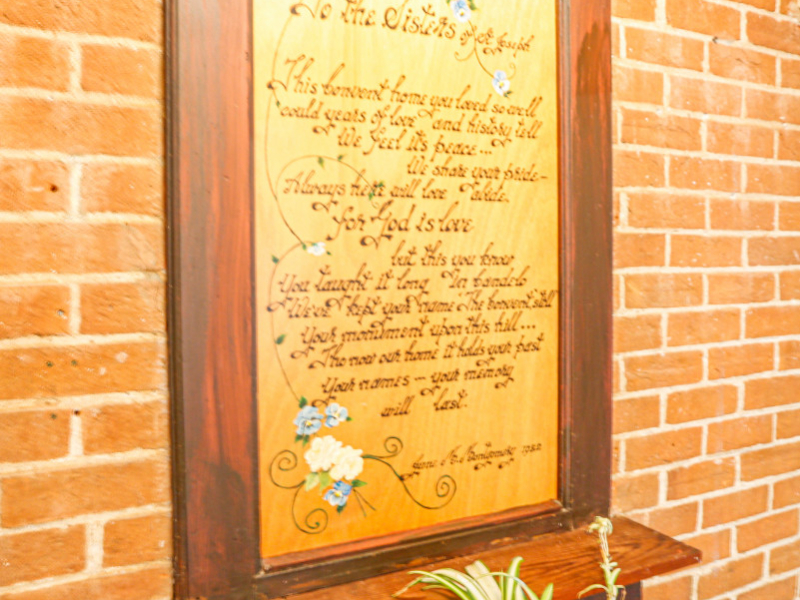 To the Sisters of St. Joseph
This convent home you loved so well
could years of love and history tell
We feel it's peace...
We share your pride-
Always here will love abide.
for God is love
but this you know
You taught it long
We've kept your name The Convent still
Your monument upon this hill...
Tho now our home it holds your past
Your names - your memory
will last.